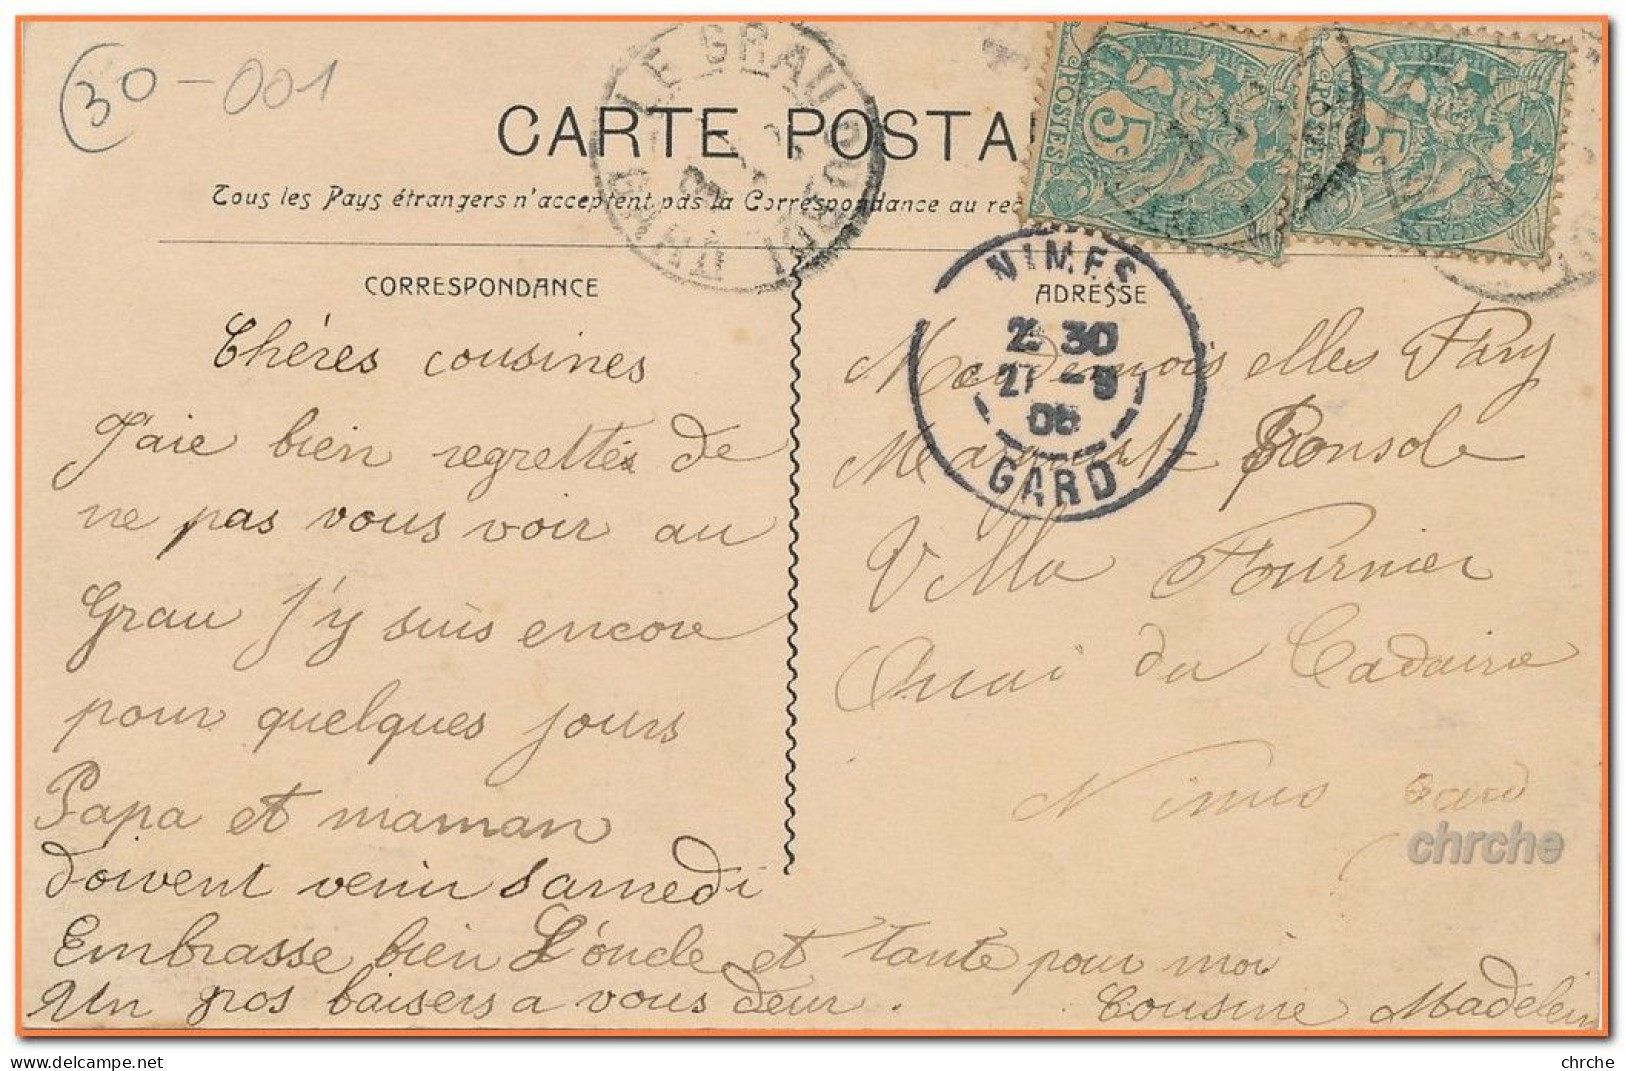 30-001
CARTE POSTA
Tous les Pays étrangers n'acceptent pas la Correspondance au rec
LE GRAU DU ROI
GARD
5 POSTES
5
CORRESPONDANCE
ADRESSE
NIMES
2 30
21 - 9
06
GARD
Chéres cousines
J'aie bien regrettés de
ne pas vous voir au
Grau j'y suis encore
pour quelques jours
Papa et maman
doivent venir samedi
Embrasse bien L'oncle et tante pour moi
Un gros baisers a vous deux.
Cousine Madelein
Mesdemoiselles Fany
Ronsole
Villa Fournier
Quai du Cadaire
Nimes Gard
chrche
delcampe.net
chrche